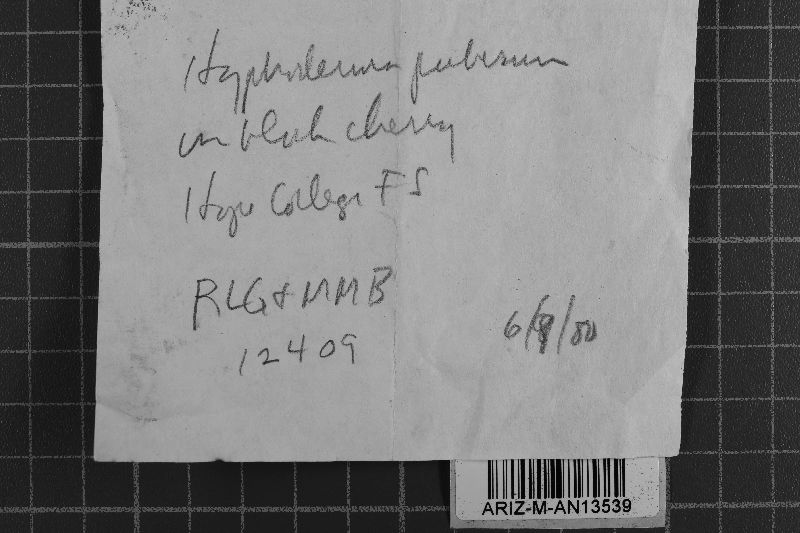 Hyphoderma puberum
on black cherry
Hope College FS
RLG & MMB
12409
6/9/80
ARIZ-M-AN13539